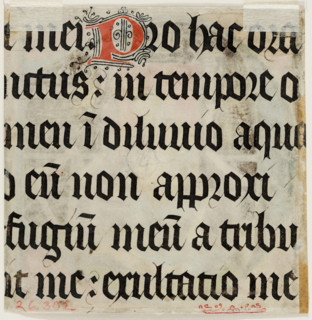 mei. Pro hac ora
nctus: in tempore o
men ī diluuio aqua
eū non approxi
fugiū meū a tribu
me: exultatio me
26.302